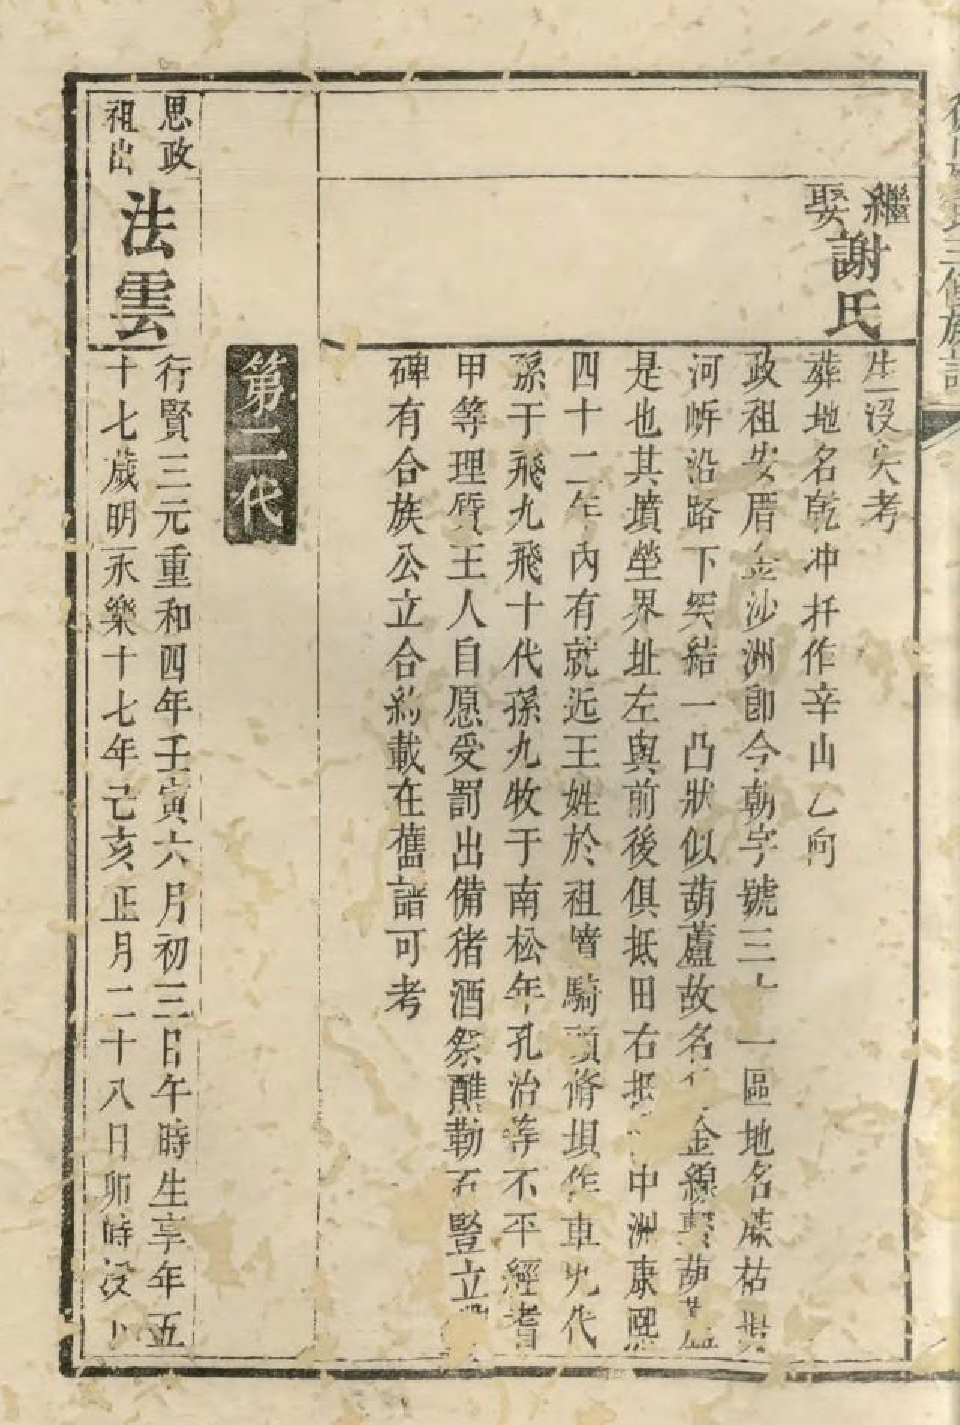 三修族譜
繼娶謝氏
生沒失考
葬地名乾冲扦作辛山乙向
政祖安厝金沙洲卽今朝字號三十一區地名蔴枯
河㟁沿路下突結一凸狀似葫蘆故名 金線 葫
是也其墳塋界址左與前後俱抵田右抵 中洲康熙
四十二年內有就近王姓於祖墳騎頂脩垻作車九代
孫于飛九飛十代孫九牧于南松年孔治等不平經耆
甲等理質王人自愿受罰出備猪酒祭醮勒石豎立
碑有合族公立合約載在舊譜可考
第二代
思政祖出
法雲
行賢三元重和四年壬寅六月初三日午時生享年五
十七歲明永樂十七年己亥正月二十八日卯時沒